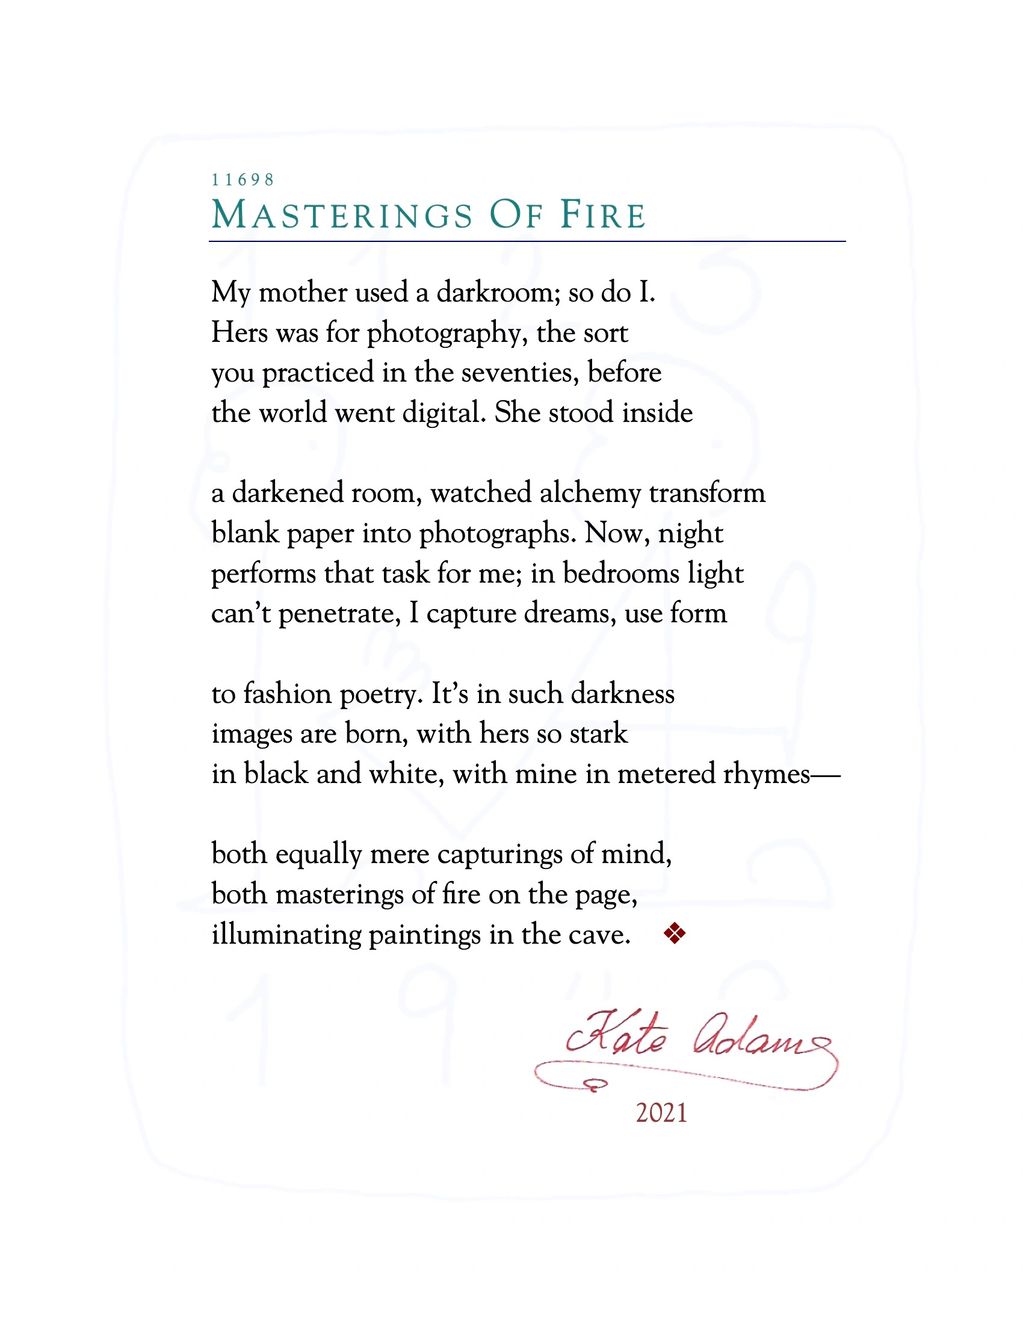 11698
MASTERINGS OF FIRE
My mother used a darkroom; so do I.
Hers was for photography, the sort
you practiced in the seventies, before
the world went digital. She stood inside
a darkened room, watched alchemy transform
blank paper into photographs. Now, night
performs that task for me; in bedrooms light
can’t penetrate, I capture dreams, use form
to fashion poetry. It’s in such darkness
images are born, with hers so stark
in black and white, with mine in metered rhymes—
both equally mere capturings of mind,
both masterings of fire on the page,
illuminating paintings in the cave. ❖
Kate Adams
2021